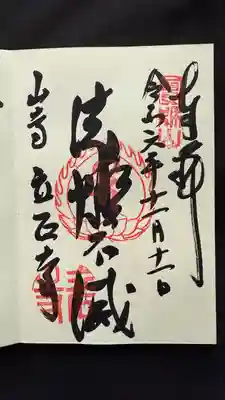 奉拝
令和六年十一月十一日
法燈不滅
山寺 立石寺